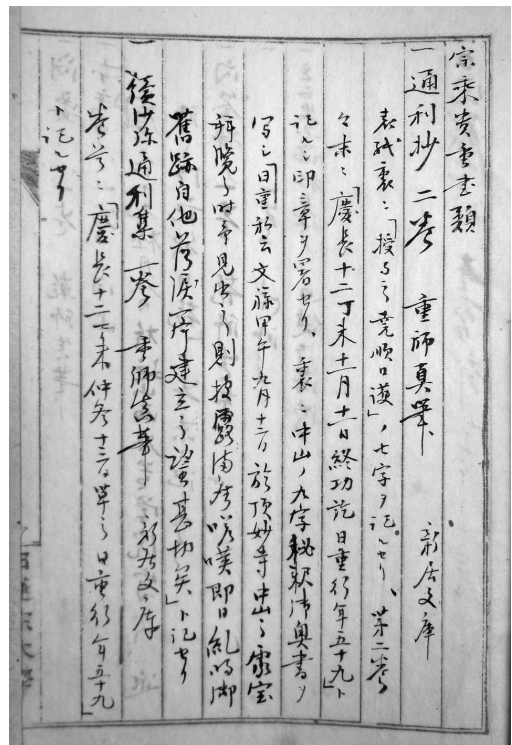 宗乗貴重書類
一通利抄 二巻 重師真筆 新居文庫
表紙裏ニ「授与之堯順日護」ノ七字ヲ記セリ、第二巻
々末ニ「慶長十二丁未十一月十一日終功訖日重行年五十九」ト
記シ印章ヲ署セリ、裏ニ中山ノ九字秘釈法奥書ヲ
写シ「日重私云文禄甲午九月十三日於頂妙寺中山之霊宝
拝覧之時予見出之則披露満座嗟嘆即日乱時脚
旧跡自他落涙一序建立之望甚切矣」ト記セリ
一続沙弥通利集 一巻 重師真筆 新居文庫
巻首ニ「慶長十二丁未仲冬十三日草之日重行年五十九」
ト記セリ